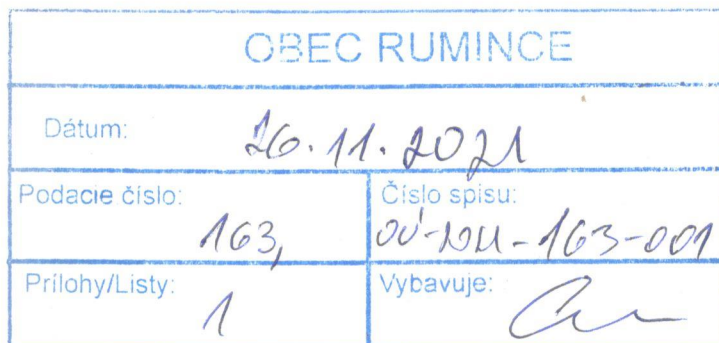 OBEC RUMINCE
Dátum: 26.11.2021
Podacie číslo: 163,
Číslo spisu: OÚ-2021-163-001
Prílohy/Listy: 1
Vybavuje: